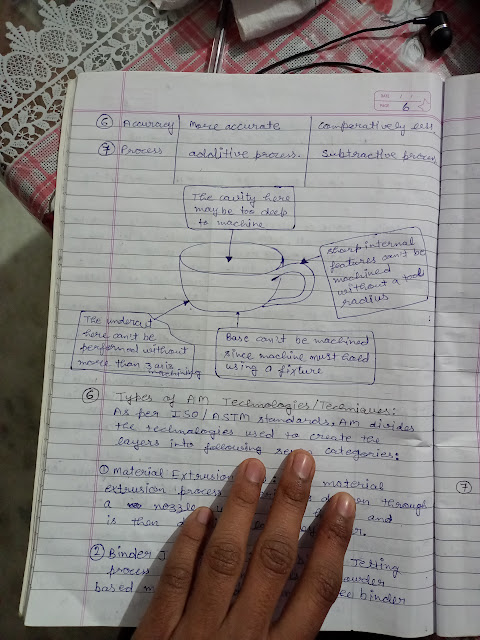 DATE / /
PAGE 6
⑥ Accuracy More accurate Comparatively less
⑦ Process additive process. Subtractive process
The cavity here
may be too deep
to machine
sharp internal
features can't be
machined
without a tool
radius
The undercut
here can't be
performed without
more than 3 axis
machining
Base can't be machined
since machine must hold
using a fixture
⑥ Types of AM Technologies/Techniques:
As per ISO/ASTM standards, AM divides
the technologies used to create the
layers into following categories:
① Material Extrusion material
extrusion process through
a nozzle and
is then
② Binder
process
based binder
⑦